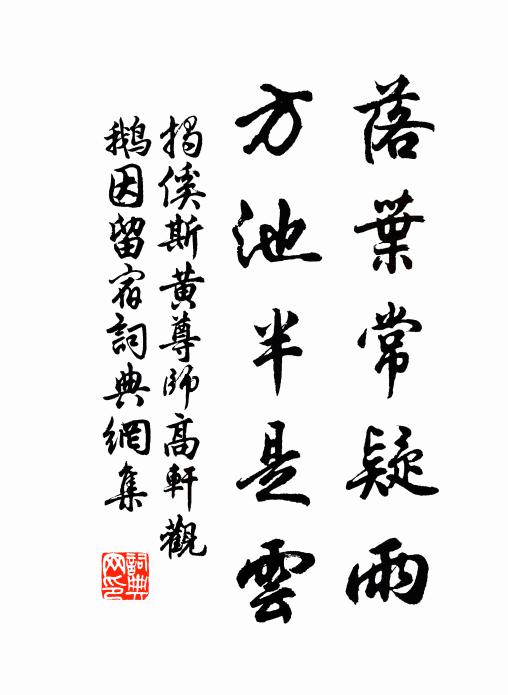 落葉常疑雨
方池半是雲
揭傒斯黄尊師高軒觀
鵝因留宿詞典網集
詞典
网印